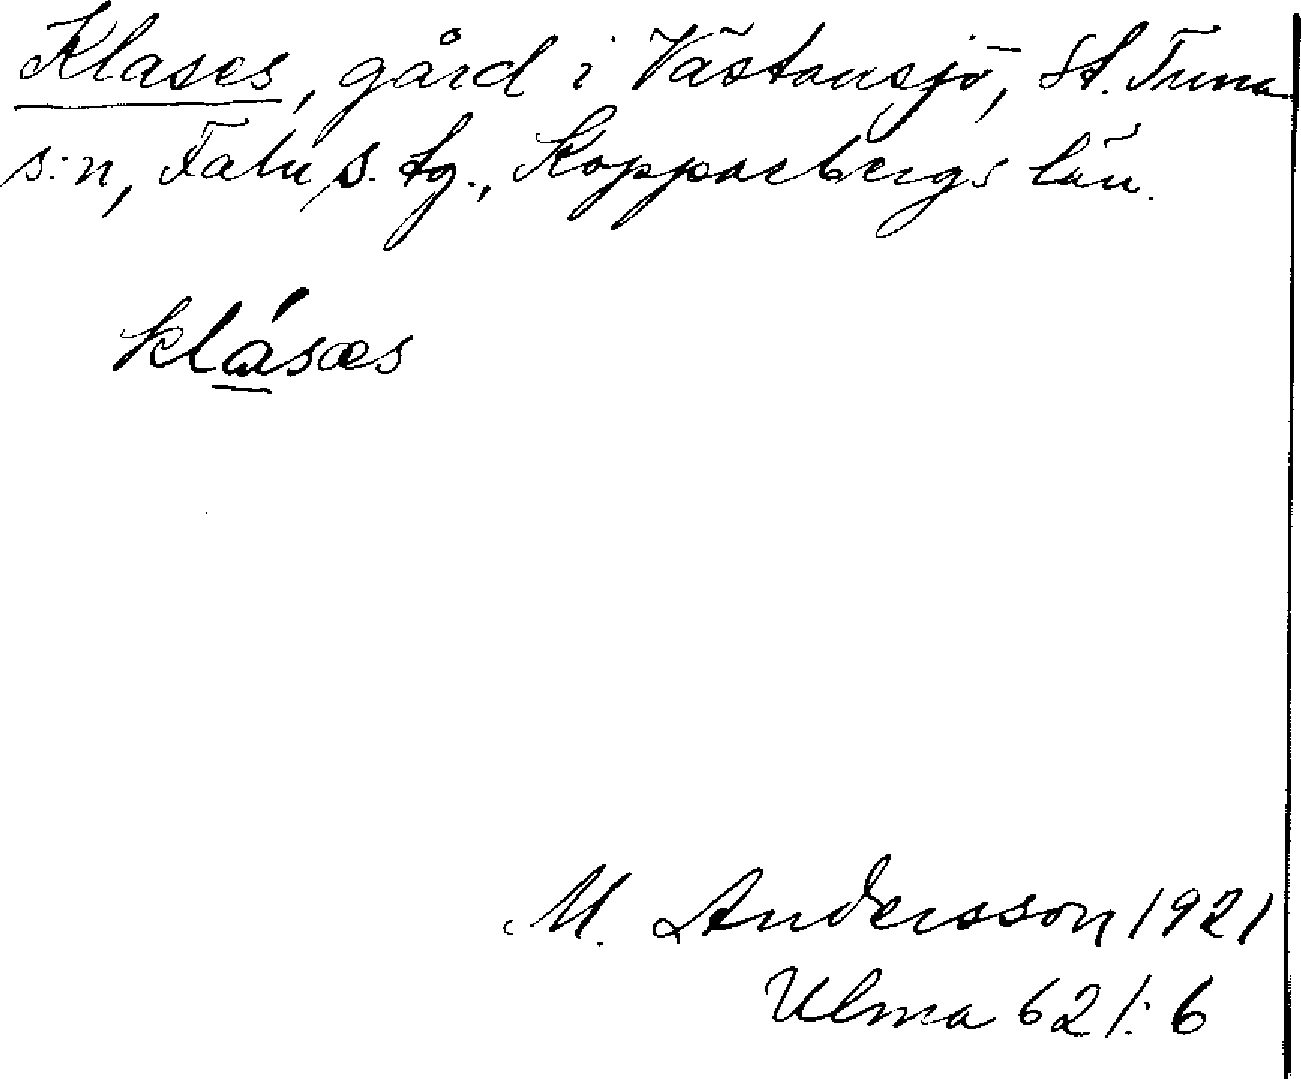 Klases, gård i Västansjö, St. Tuna
s:n, Falu s. tg., Kopparbergs län.
klásæs
M. Andersson 1921
Ulma 621:6